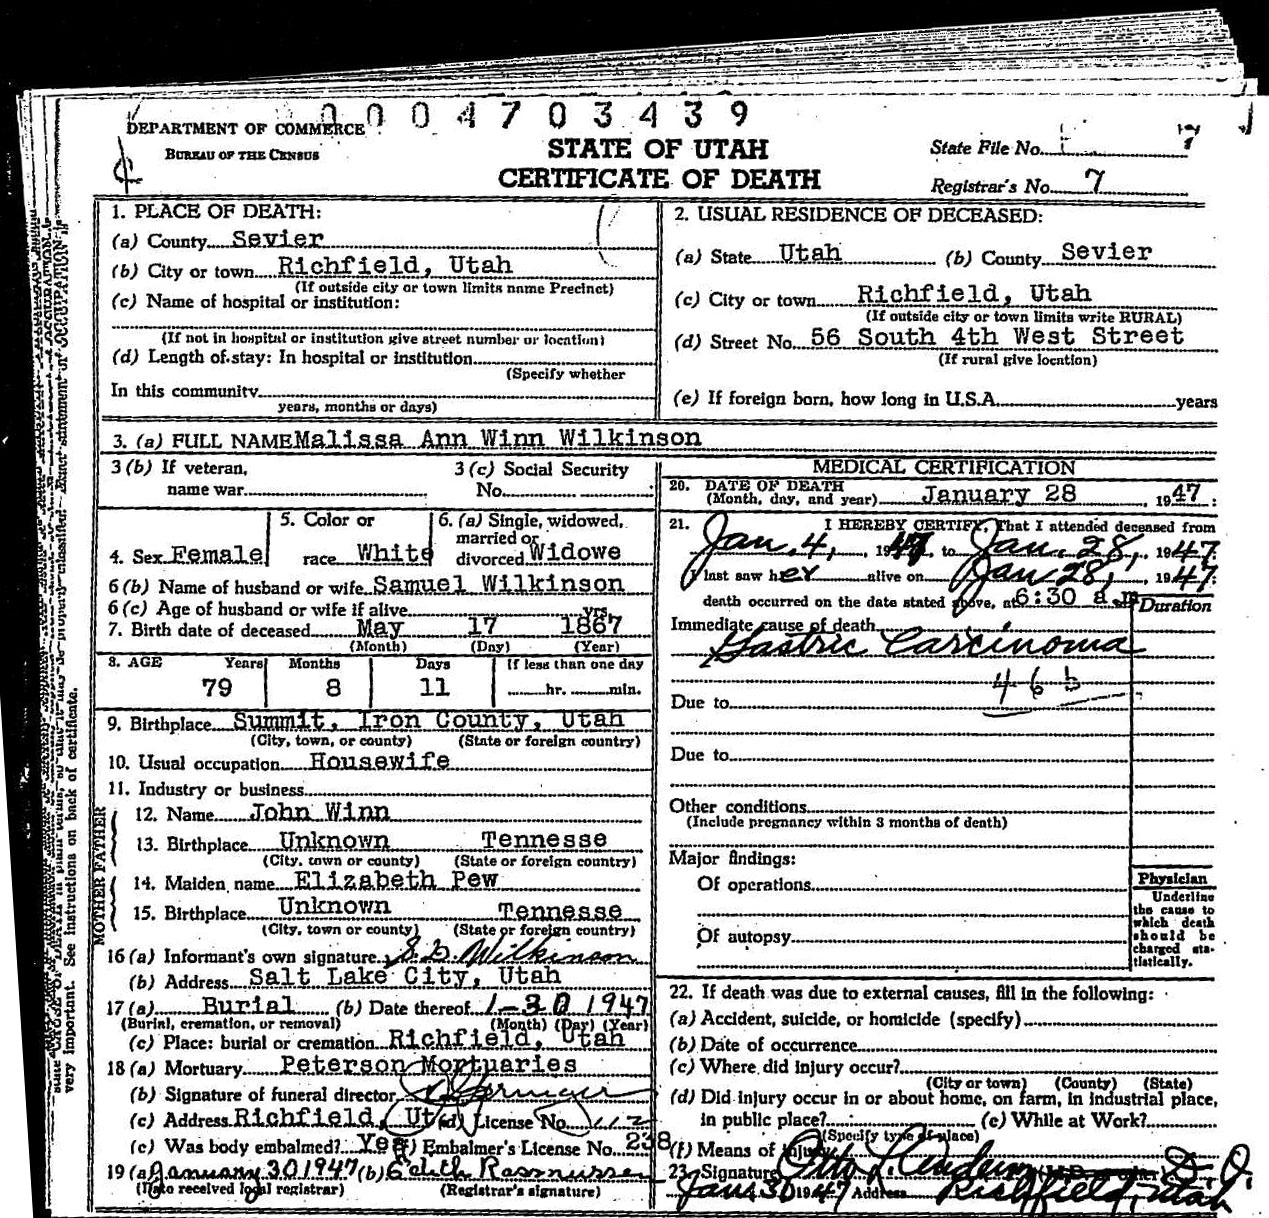 0004703439
DEPARTMENT OF COMMERCE
BUREAU OF THE CENSUS
STATE OF UTAH
CERTIFICATE OF DEATH
State File No. 7
Registrar's No. 7
1. PLACE OF DEATH:
(a) County Sevier
(b) City or town Richfield, Utah
(If outside city or town limits name Precinct)
(c) Name of hospital or institution:
(If not in hospital or institution give street number or location)
(d) Length of stay: In hospital or institution
(Specify whether
In this community
years, months or days)
2. USUAL RESIDENCE OF DECEASED:
(a) State Utah (b) County Sevier
(c) City or town Richfield, Utah
(If outside city or town limits write RURAL)
(d) Street No. 56 South 4th West Street
(If rural give location)
(e) If foreign born, how long in U.S.A. years
3. (a) FULL NAME Malissa Ann Winn Wilkinson
3 (b) If veteran, name war
3 (c) Social Security No.
4. Sex Female
5. Color or race White
6. (a) Single, widowed, married or divorced Widowe
6 (b) Name of husband or wife Samuel Wilkinson
6 (c) Age of husband or wife if alive yrs.
7. Birth date of deceased May 17 1867
(Month) (Day) (Year)
8. AGE Years Months Days If less than one day
79 8 11 hr. min.
9. Birthplace Summit, Iron County, Utah
(City, town, or county) (State or foreign country)
10. Usual occupation Housewife
11. Industry or business
FATHER
12. Name John Winn
13. Birthplace Unknown Tennesse
(City, town or county) (State or foreign country)
MOTHER
14. Maiden name Elizabeth Pew
15. Birthplace Unknown Tennesse
(City, town or county) (State or foreign country)
16 (a) Informant's own signature S. D. Wilkinson
(b) Address Salt Lake City, Utah
17 (a) Burial (b) Date thereof 1-30 1947
(Burial, cremation, or removal) (Month) (Day) (Year)
(c) Place: burial or cremation Richfield, Utah
18 (a) Mortuary Peterson Mortuaries
(b) Signature of funeral director
(c) Address Richfield, Ut (d) License No. 112
(e) Was body embalmed? Yes (f) Embalmer's License No. 238
19 (a) January 30 1947 (b) Edith Rasmussen
(Date received local registrar) (Registrar's signature)
MEDICAL CERTIFICATION
20. DATE OF DEATH
(Month, day, and year) January 28, 1947:
21. I HEREBY CERTIFY, That I attended deceased from
Jan. 4, 1947, to Jan. 28, 1947.
I last saw her alive on Jan 28, 1947:
death occurred on the date stated above, at 6:30 a.m
Duration
Immediate cause of death
Gastric Carcinoma
46b
Due to
Due to
Other conditions
(Include pregnancy within 3 months of death)
Major findings:
Of operations
Of autopsy
Physician
Underline
the cause to
which death
should be
charged sta-
tistically.
22. If death was due to external causes, fill in the following:
(a) Accident, suicide, or homicide (specify)
(b) Date of occurrence
(c) Where did injury occur?
(City or town) (County) (State)
(d) Did injury occur in or about home, on farm, in industrial place,
in public place? (e) While at Work?
(Specify type of place)
(f) Means of injury
23. Signature Otto L. Anderson D. O.
Jan 30 1947 Address Richfield, Utah
very important. See instructions on back of certificate.